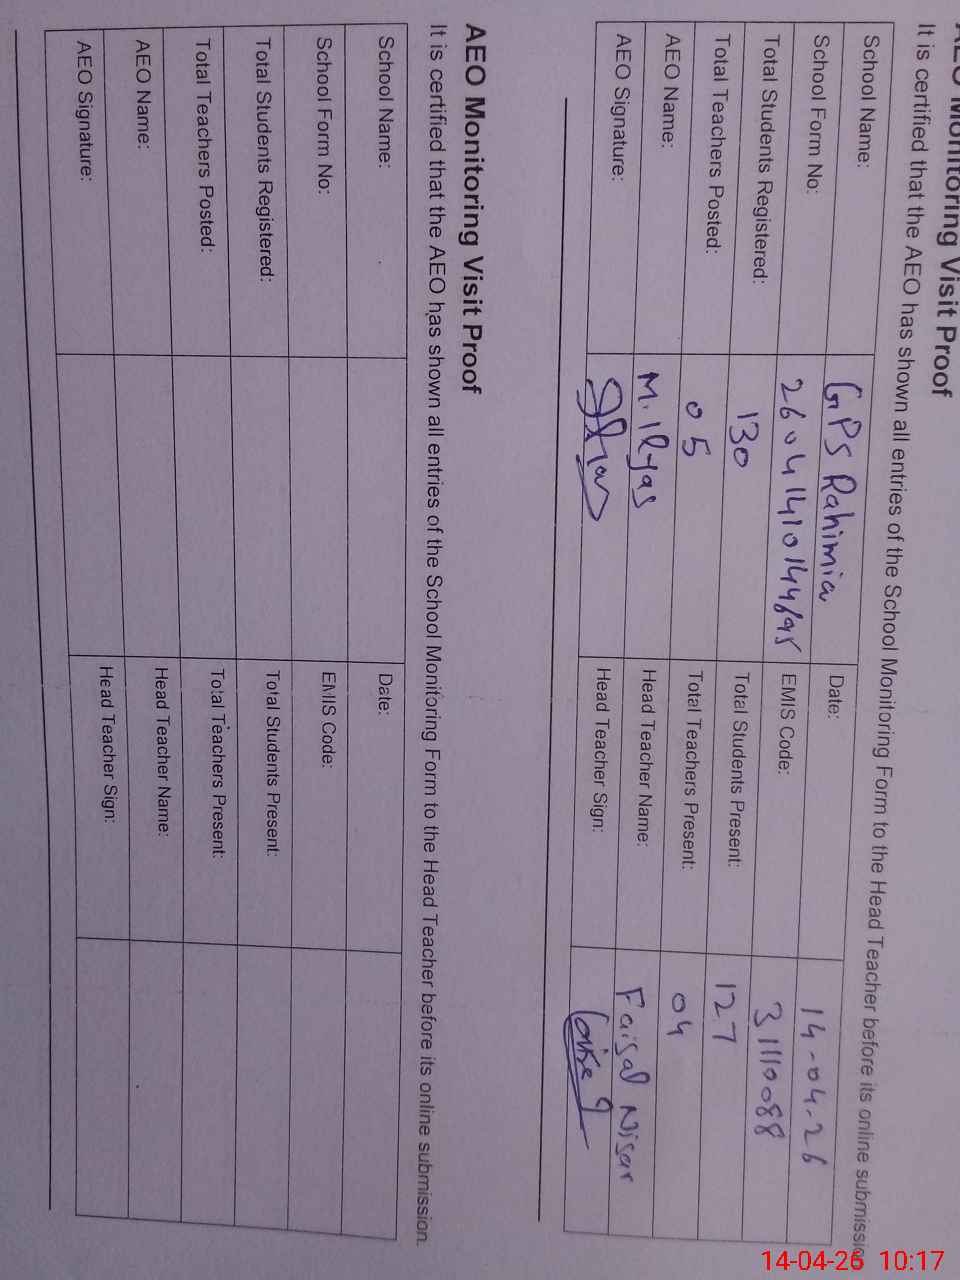 AEO Monitoring Visit Proof
It is certified that the AEO has shown all entries of the School Monitoring Form to the Head Teacher before its online submission
School Name: GPS Rahimia Date: 14-04-26
School Form No: EMIS Code: 31110088
Total Students Registered: 130 Total Students Present: 127
Total Teachers Posted: 05 Total Teachers Present: 04
AEO Name: M. Ilyas Head Teacher Name: Faisal Nisar
AEO Signature: Head Teacher Sign:
AEO Monitoring Visit Proof
It is certified that the AEO has shown all entries of the School Monitoring Form to the Head Teacher before its online submission.
School Name: Date:
School Form No: EMIS Code:
Total Students Registered: Total Students Present:
Total Teachers Posted: Total Teachers Present:
AEO Name: Head Teacher Name:
AEO Signature: Head Teacher Sign:
14-04-26 10:17